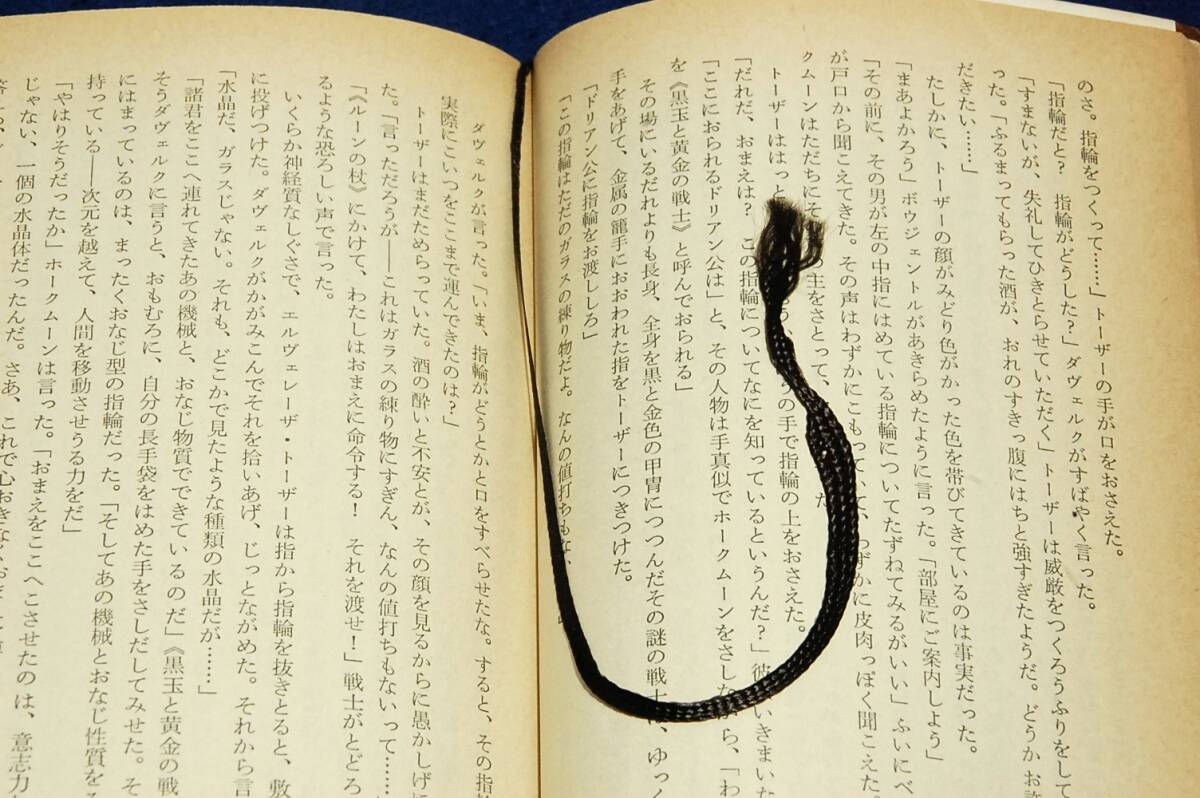 のさ。指輪をつくって……」トーザーの手が口をおさえた。
「指輪だと？　指輪がどうした？」ダヴェルクがすばやく言った。
「すまないが、失礼してひきとらせていただく」トーザーは威厳をつくろうふりをして
った。「ふるまってもらった酒が、おれのすきっ腹にはちと強すぎたようだ。どうかお許
だきたい……」
たしかに、トーザーの顔がみどり色がかった色を帯びてきているのは事実だった。
「まあよかろう」ボウジェントルがあきらめたように言った。「部屋にご案内しよう」
「その前に、その男が左の中指にはめている指輪についてたずねてみるがいい」ふいにべ
が戸口から聞こえてきた。その声はわずかにこもっていて、わずかに皮肉っぽく聞こえた。
クムーンはただちにそ の主をさとって、 た
トーザーははっと の手で指輪の上をおさえた。
「だれだ、おまえは？　この指輪についてなにを知っているというんだ？」彼 いきまいた
「ここにおられるドリアン公は」と、その人物は手真似でホークムーンをさしながら、「わ
を《黒玉と黄金の戦士》と呼んでおられる」
その場にいるだれよりも長身、全身を黒と金色の甲冑につつんだその謎の戦士は、ゆっく
手をあげて、金属の籠手におおわれた指をトーザーにつきつけた。
「ドリアン公に指輪をお渡ししろ」
「この指輪はただのガラスの練り物だよ。なんの値打ちもない
ダヴェルクが言った。「いま、指輪がどうとかと口をすべらせたな。すると、その指輪
実際にこいつをここまで運んできたのは？」
トーザーはまだためらっていた。酒の酔いと不安とが、その顔を見るからに愚かしげに
た。「言っただろうが――これはガラスの練り物にすぎん、なんの値打ちもないって……
「《ルーンの杖》にかけて、わたしはおまえに命令する！　それを渡せ！」戦士がとどろ
るような恐ろしい声で言った。
いくらか神経質なしぐさで、エルヴェレーザ・トーザーは指から指輪を抜きとると、敷
に投げつけた。ダヴェルクがかがみこんでそれを拾いあげ、じっとながめた。それから言
「水晶だ、ガラスじゃない。それも、どこかで見たような種類の水晶だが……」
「諸君をここへ連れてきたあの機械と、おなじ物質でできているのだ」《黒玉と黄金の戦
そうダヴェルクに言うと、おもむろに、自分の長手袋をはめた手をさしだしてみせた。そ
にはまっているのは、まったくおなじ型の指輪だった。「そしてあの機械とおなじ性質を
持っている――次元を越えて、人間を移動させうる力をだ」
「やはりそうだったか」ホークムーンは言った。「おまえをここへこさせたのは、意志力
じゃない、一個の水晶体だったんだ。さあ、これで心おきな